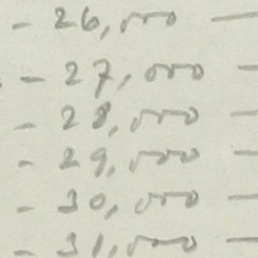 - 26,000 -
- 27,000 -
- 28,000 -
- 29,000 -
- 30,000 -
- 31,000 -